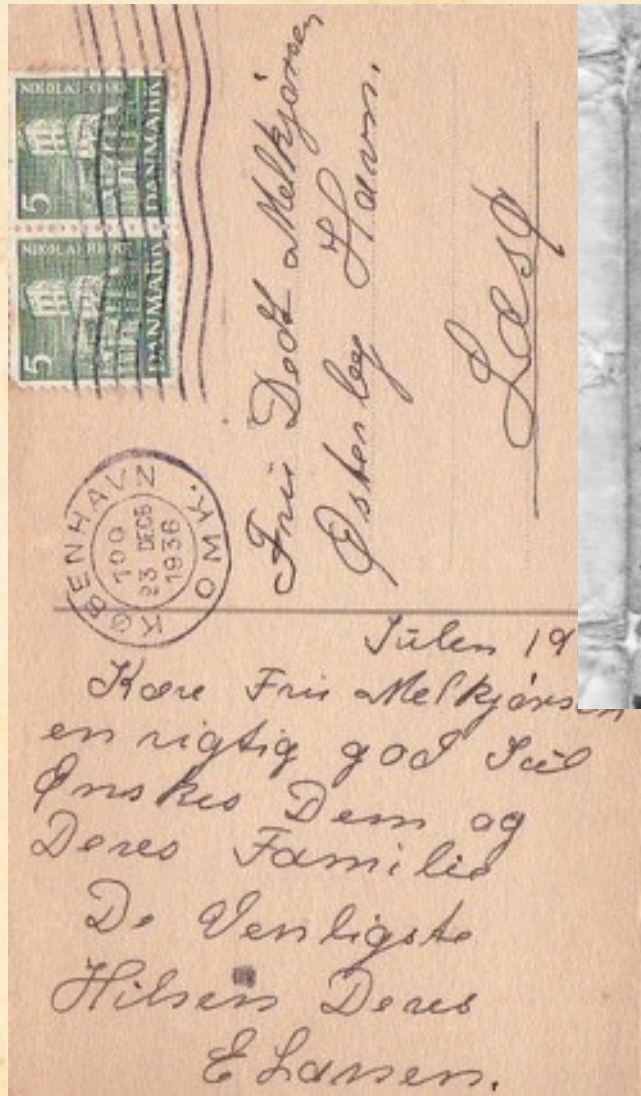 5 NIKOLAI KIRKE DANMARK
5 NIKOLAI KIRKE DANMARK
KØBENHAVN OMK.
23 DEC
1936
Fru Melkjørsen
Østerby Havn.
Læsø
Julen 19
Kære Fru Melkjørsen
en rigtig god Jul
Ønskes Dem og
Deres Familie
De Venligste
Hilsen Deres
E Larsen.